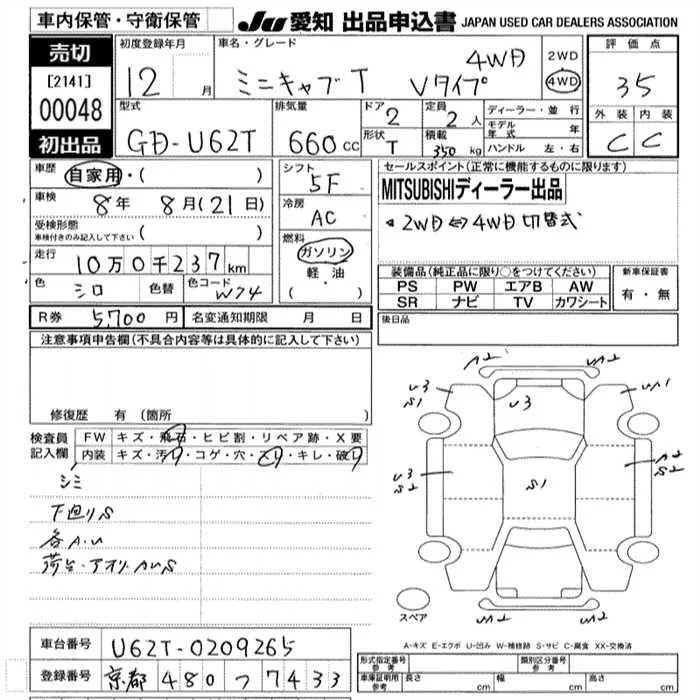 車内保管・守衛保管
JU 愛知 出品申込書 JAPAN USED CAR DEALERS ASSOCIATION
売切
[2141]
00048
初出品
初度登録年月
12 月
車名・グレード
ミニキャブT Vタイプ 4WD
2WD
4WD
評価点
35
外装 内装
C C
型式
GD-U62T
排気量
660 CC
ドア
2
形状
T
定員
2 人
積載
350 kg
ディーラー・並行
モデル年式 年
ハンドル 左・右
車歴
自家用・( )
車検
8年 8月(21日)
受検形態
車検付きのみ記入して下さい ( )
走行
10万0千237 km
色
シロ
色替
色コード
W74
シフト
5F
冷房
AC
燃料
ガソリン
軽油
( )
セールスポイント(正常に機能するものに限ります)
MITSUBISHIディーラー出品
2WD⇔4WD切替式
装備品(純正品に限り○をつけてください)
PS PW エアB AW
SR ナビ TV カワシート
新車保証書
有・無
R券 5,700 円
名変通知期限 月 日
後日品
注意事項申告欄(不具合内容等は具体的に記入して下さい)
修復歴 有 (箇所 )
検査員記入欄
FW キズ・飛石・ヒビ割・リペア跡・X要
内装 キズ・汚レ・コゲ・穴・スレ・キレ・破レ
シミ
下廻りS
各A.U
荷台・アオリAUS
A2 UA2
U3 S1
U3
UA1
U3 S2
S1
A2 S2
UA2 UA2
スペア
A-キズ E-エクボ U-凹み W-補修跡 S-サビ C-腐食 XX-交換済
車台番号
U62T-0209265
登録番号
京都 480 つ 7433
形式指定番号
参考
類別区分番号
参考
車庫証明用
参考
長さ cm 幅 cm 高さ cm